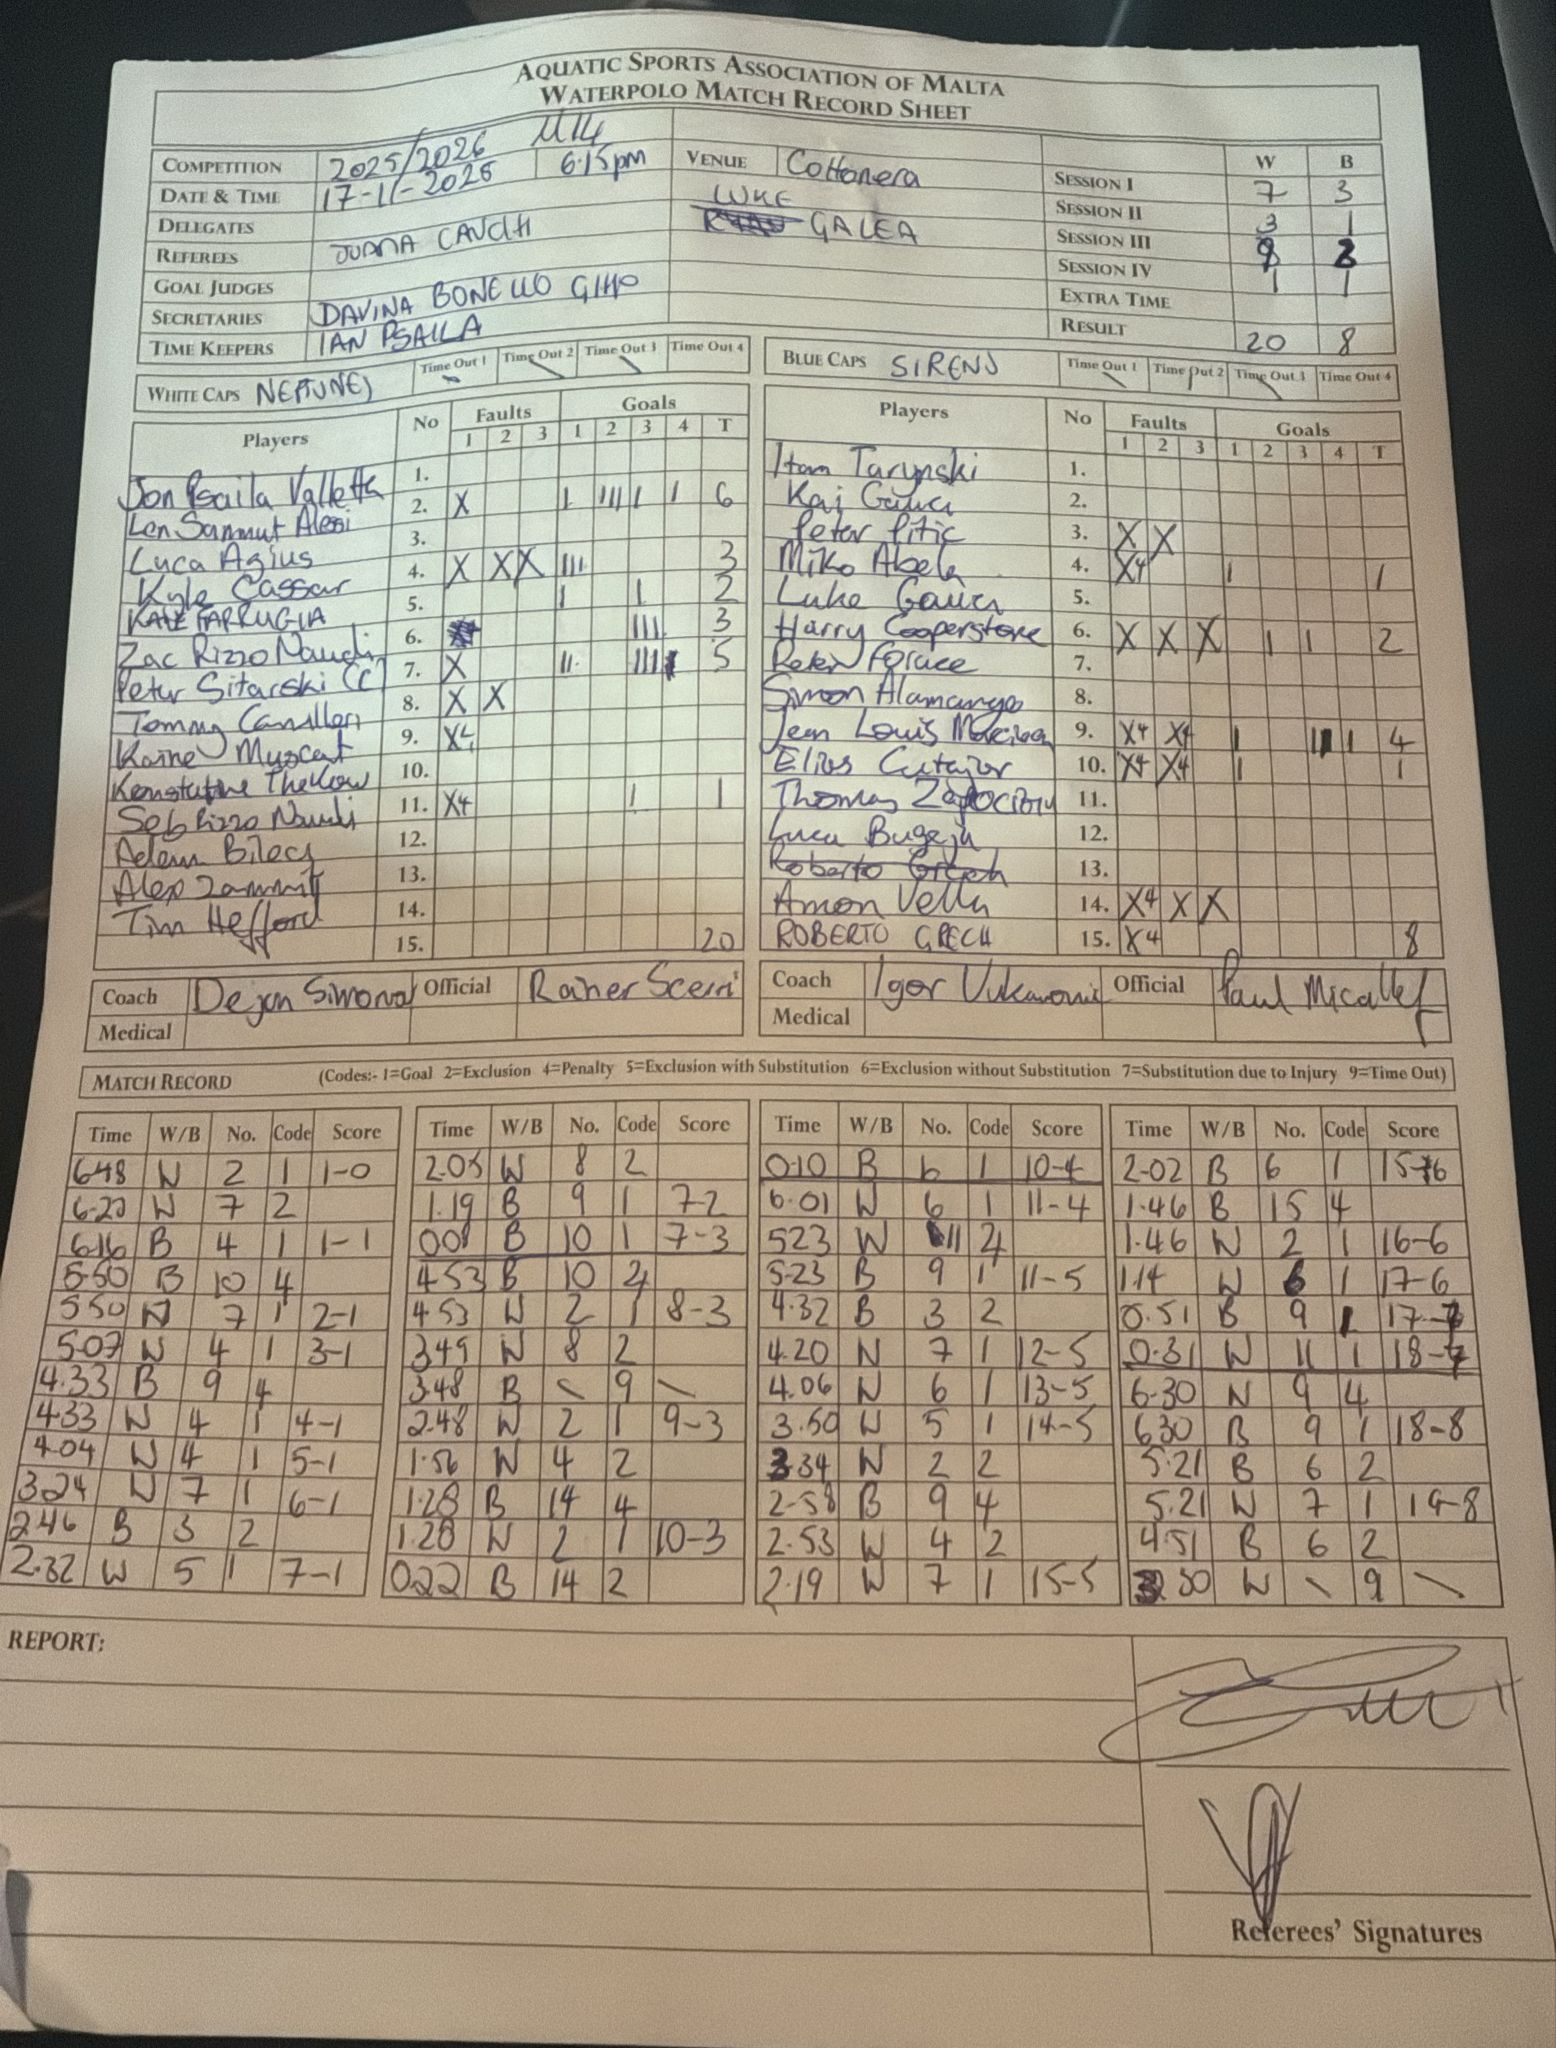 AQUATIC SPORTS ASSOCIATION OF MALTA
WATERPOLO MATCH RECORD SHEET
COMPETITION 2025/2026 U14
DATE & TIME 17-11-2025 6.15pm VENUE Cottonera
DELEGATES
REFEREES JOANA CAUCHI LUKE GALEA
GOAL JUDGES
SECRETARIES DAVINA BONELLO
TIME KEEPERS IAN PSAILA
W B
SESSION I 7 3
SESSION II 3 1
SESSION III
SESSION IV 1 1
EXTRA TIME
RESULT 20 8
WHITE CAPS NEPTUNES Time Out 1 Time Out 2 Time Out 3 Time Out 4
Players No Faults Goals
1 2 3 1 2 3 4 T
Jon Psaila Valletta 1.
Len Sammut Alessi 2. X I IIII I I 6
Luca Agius 3.
Kyle Cassar 4. X X X III 3
FARRUGIA 5. I I 2
Zac Rizzo Naudi 6. III 3
Peter Sitarski (C) 7. X II 5
Tommy 8. X X
Muscat 9. X4
10.
Seb Rizzo Naudi 11. X4 I 1
Adam 12.
Alex Zammit 13.
Tim Hefford 14.
15. 20
Coach Dejan Official Rainer Scerri
Medical
BLUE CAPS SIRENS Time Out 1 Time Out 2 Time Out 3 Time Out 4
Players No Faults Goals
1 2 3 1 2 3 4 T
1.
Kai Gauci 2.
Peter Pitic 3. X X
Miko Abela 4. X4 I 1
Luke Gauci 5.
Harry Cooperstone 6. X X X I I 2
7.
Simon Alamango 8.
Jean Louis 9. X4 X4 I 4
Elios Cutajar 10. X4 X4 I 1
Thomas 11.
Luca Bugeja 12.
Roberto Grech 13.
Amon Vella 14. X4 X X
ROBERTO GRECH 15. X4 8
Coach Igor Official Paul Micallef
Medical
MATCH RECORD (Codes:- 1=Goal 2=Exclusion 4=Penalty 5=Exclusion with Substitution 6=Exclusion without Substitution 7=Substitution due to Injury 9=Time Out)
Time W/B No. Code Score
6.48 W 2 1 1-0
W 7 2
6.16 B 4 1 1-1
5.50 B 10 4
5.50 W 7 1 2-1
5.07 W 4 1 3-1
4.33 B 9 4
4.33 W 4 1 4-1
4.04 W 4 1 5-1
3.24 W 7 1 6-1
2.46 B 3 2
2.32 W 5 1 7-1
Time W/B No. Code Score
2.05 W 8 2
1.19 B 9 1 7-2
0.08 B 10 1 7-3
4.53 B 10 4
4.53 W 2 1 8-3
3.49 W 8 2
3.48 B \ 9 \
2.48 W 2 1 9-3
1.56 W 4 2
1.28 B 14 4
1.28 W 2 1 10-3
0.22 B 14 2
Time W/B No. Code Score
0.10 B 6 1 10-4
6.01 W 6 1 11-4
5.23 W 11 4
5.23 B 9 1 11-5
4.32 B 3 2
4.20 W 7 1 12-5
4.06 W 6 1 13-5
3.50 W 5 1 14-5
3.34 W 2 2
2.58 B 9 4
2.53 W 4 2
2.19 W 7 1 15-5
Time W/B No. Code Score
2.02 B 6 1 15-6
1.46 B 15 4
1.46 W 2 1 16-6
1.14 W 6 1 17-6
0.51 B 9 1 17-7
0.31 W 11 1 18-7
6.30 W 9 4
6.30 B 9 1 18-8
5.21 B 6 2
5.21 W 7 1 19-8
4.51 B 6 2
W \ 9 \
REPORT:
Referees' Signatures